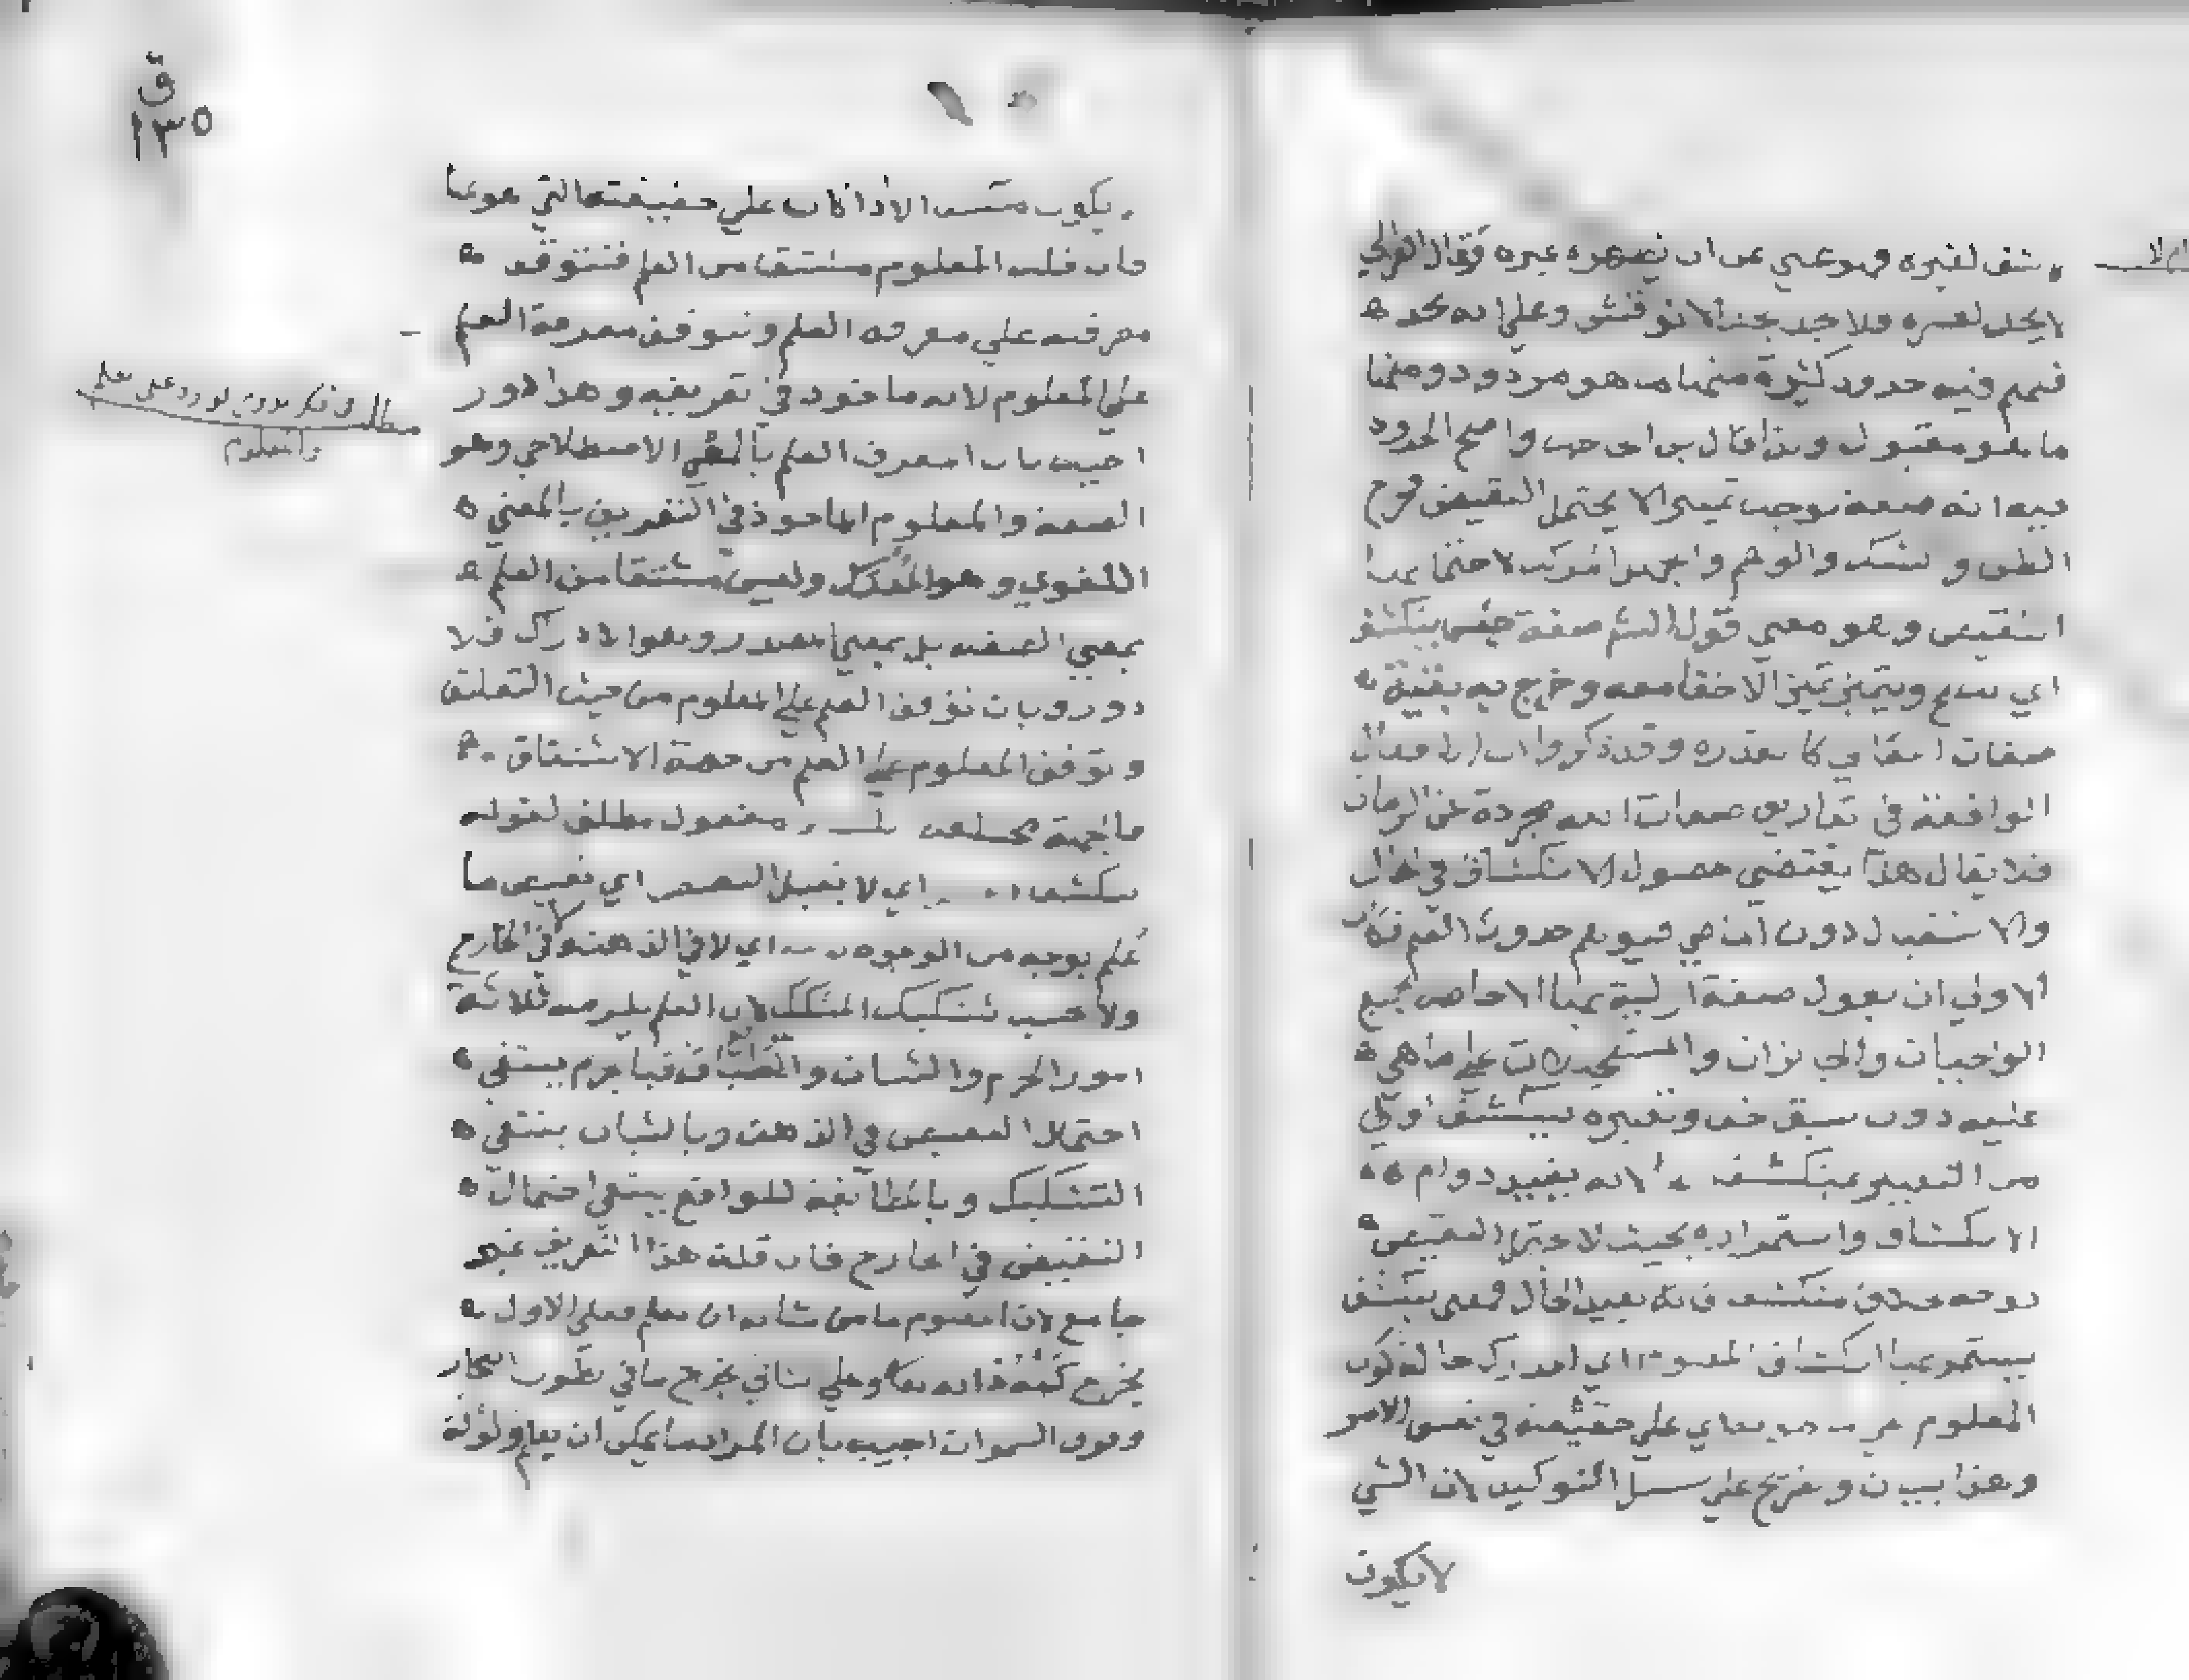 كاشف لغيره فهو غني عن ان يظهره غيره وقال الغزالي
لا يحد لعسره فلا يحد بحد الا نوقش وعلي انه يحد
فلهم فيه حدود كثيرة منها ما هو مردود ومنها
ما هو مقبول ولذا قال بن الحاجب واصح الحدود
فيه انه صفة توجب تمييزا لا يحتمل النقيض فخرج
الظن والشك والوهم والجهل المركب لاحتمالها
النقيض وهو معني قوله العلم صفة ينكشف
اي يتضح ويتميز تميزا لا خفا معه وخرج به بقية
صفات المعاني كالقدرة وقد ذكروا ان الافعال
الواقعة في تعاريف صفات الله مجردة عن الزمان
فلا يقال هذا يقتضي حصول الانكشاف في الحال
والاستقبال دون الماضي فيوهم حدوث العلم فكان
الاولي ان يقول صفة ازلية لها الاحاطة بجميع
الواجبات والجايزات والمستحيلات علي ما هي
عليه دون سبق خفا وتعبيره بينكشف اولي
من التعبير بمنكشف لانه يفيد دوام
الانكشاف واستمراره بحيث لا يحتمل النقيض
بوجه بخلاف منكشف فانه يفيد الحال فمعني ينكشف
يستمر بها انكشاف المعلوم اي المدرك حالة كون
المعلوم علي ما هو به اي علي حقيقته في نفس الامر
وهذا بيان وتصريح علي سبيل التوكيد لان الشي
لا يكون
ق
١٣٥
١٠
يكون منكشفا الا اذا كان علي حقيقته التي هو عليها
فان قلت المعلوم مشتقا من العلم فتتوقف
معرفته علي معرفة العلم وتتوقف معرفة العلم
علي المعلوم لانه ماخوذ في تعريفه وهذا دور
اجيب بان المعرف العلم بالمعني الاصطلاحي وهو
الصفة والمعلوم الماخوذ في التعريف بالمعني
اللغوي وهو المدرك وليس مشتقا من العلم
بمعني الصفة بل بمعني المصدر وهو الادراك فلا
دور وبان توقف العلم علي المعلوم من حيث التعلق
وتوقف المعلوم علي العلم من جهة الاشتقاق
فالجهة مختلفة مفعول مطلق لقوله
ينكشف اي لا يقبل النقيض اي نقيض ما
علم بوجه من الوجوه اي لا في الذهن ولا في الخارج
ولا بحسب تشكيك المشكك لان العلم يلزمه ثلاثة
امور الجزم والثبات والمطابقة فبالجزم ينتفي
احتمال النقيض في الذهن وبالثبات ينتفي
التشكيك وبالمطابقة للواقع ينتفي احتمال
النقيض في الخارج فان قلت هذا التعريف غير
جامع لان المعلوم ما من شانه ان يعلم فعلي الاول
يخرج كنه ذاته تعالى وعلي الثاني يخرج ما في بطون البحار
وفوق السموات اجيب بان المراد ما يمكن ان يعلم ولو لله
مطلب في ذكر الدور الوارد على العلم
والمعلوم